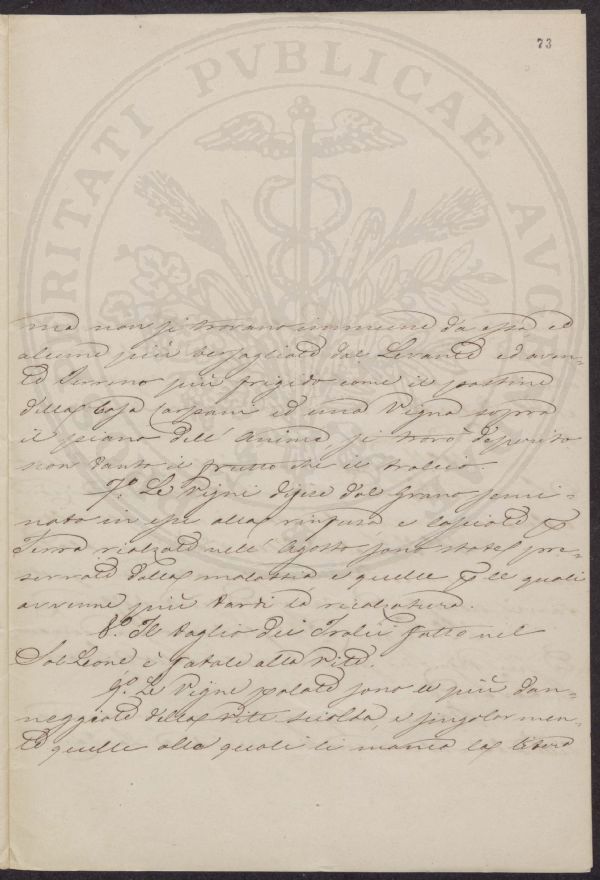 73
PVBLICAE
ma non si trovano immune da essa ed
alcune più bersagliate dal Levante ed aven-
te Terreno più frigido come il pastine
della Casa Carpani ed una Vigna sopra
il piano dell' Anime si trovò deperito
non tanto il frutto che il tralcio.
7.° Le Vigni difese dal Grano semi-
nato in esse alla rinfusa e lasciate p
Terra rialzate nell' Agosto sono state pre-
servate dalla malattia e quelle p le quali
avvenne più tardi la rialzatura.
8.° Il taglio dei Tralci fatto nel
Sol Leone è fatale alla Vite.
9.° Le Vigne palate sono le più dan-
neggiate della Vite sciolta, e singolarmen-
te quelle alle quali li manca la terra